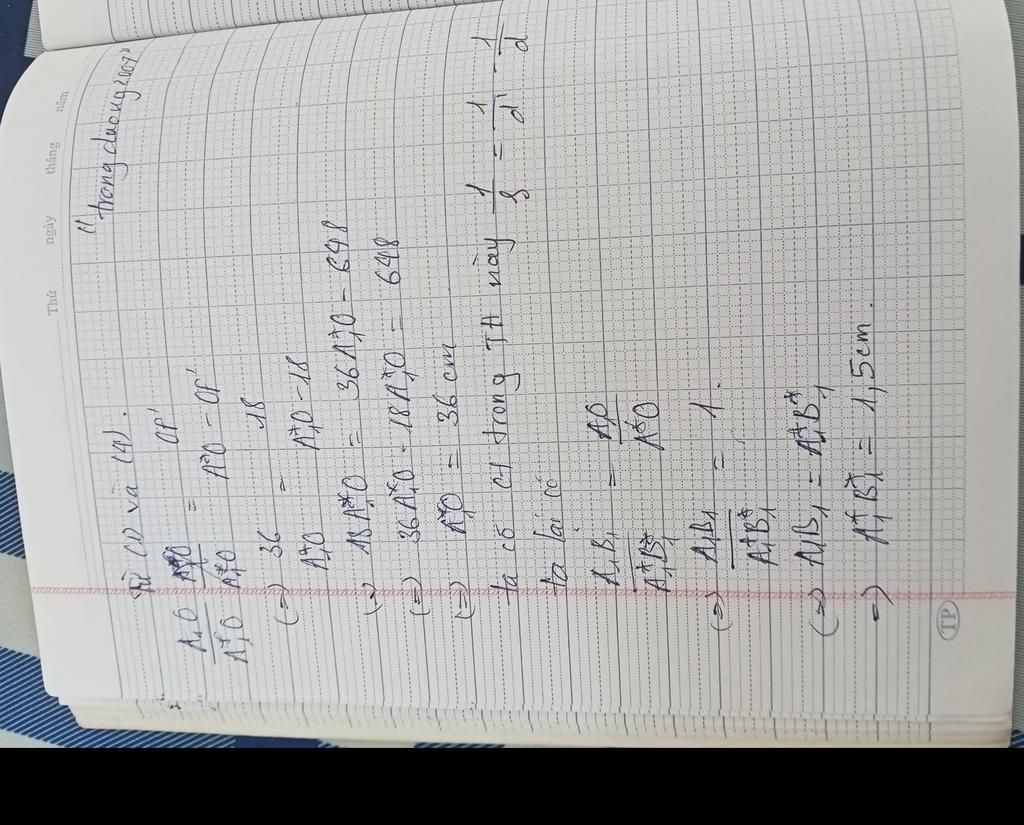 Thứ ngày tháng năm
"trongduong2007"
Từ (1) và (4).
A₁O / A₁*O = OF' / A₁*O - OF'
(=) 36 / A₁*O = 18 / A₁*O - 18
(=) 18A₁*O = 36A₁*O - 648
(=) 36A₁*O - 18A₁*O = 648
(=) A₁*O = 36cm
ta có CT trong TH này 1/f = 1/d' - 1/d
ta lại có
A₁B₁ / A₁*B₁* = A₁O / A₁*O
(=) A₁B₁ / A₁*B₁* = 1.
(=) A₁B₁ = A₁*B₁*
=) A₁*B₁* = 1,5cm.
TP